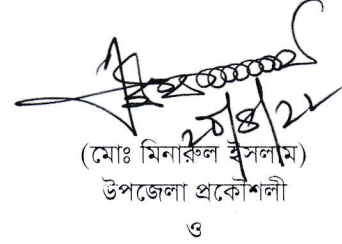 ২০/৪/২২
(মোঃ মিনারুল ইসলাম)
উপজেলা প্রকৌশলী
ও